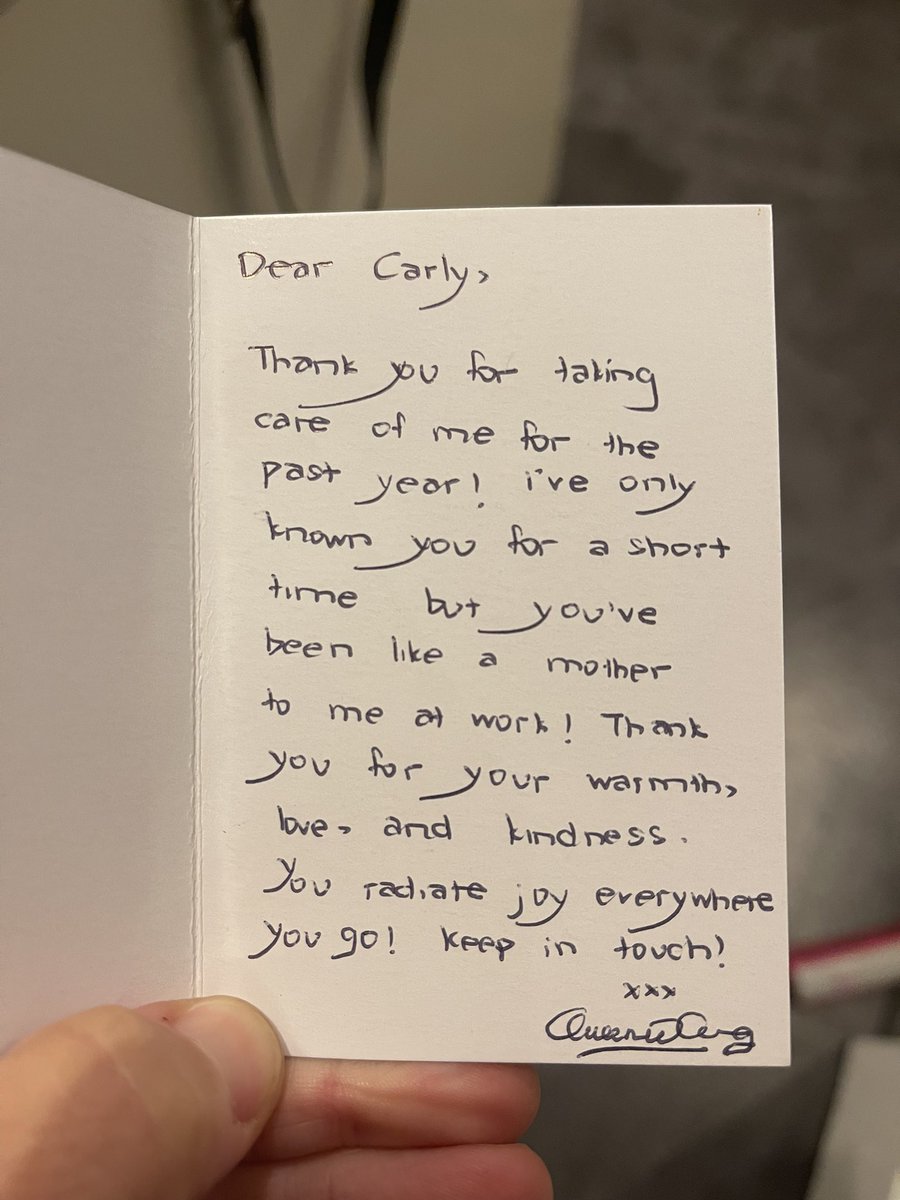 Dear Carly,
Thank you for taking
care of me for the
past year! i've only
known you for a short
time but you've
been like a mother
to me at work! Thank
you for your warmth,
love, and kindness.
You radiate joy everywhere
you go! Keep in touch!
xxx